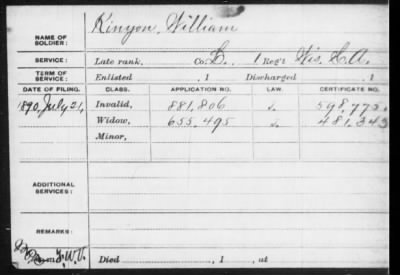 NAME OF SOLDIER: Kinyon, William
SERVICE: Late rank, Co. L, 1 Reg't Wis. H.A.
TERM OF SERVICE: Enlisted , 1 Discharged , 1
DATE OF FILING. CLASS. APPLICATION NO. LAW. CERTIFICATE NO.
1890, July 21, Invalid, 881,806 598,775
Widow, 655,495 481,343
Minor,
ADDITIONAL SERVICES:
REMARKS:
Died , 1 , at